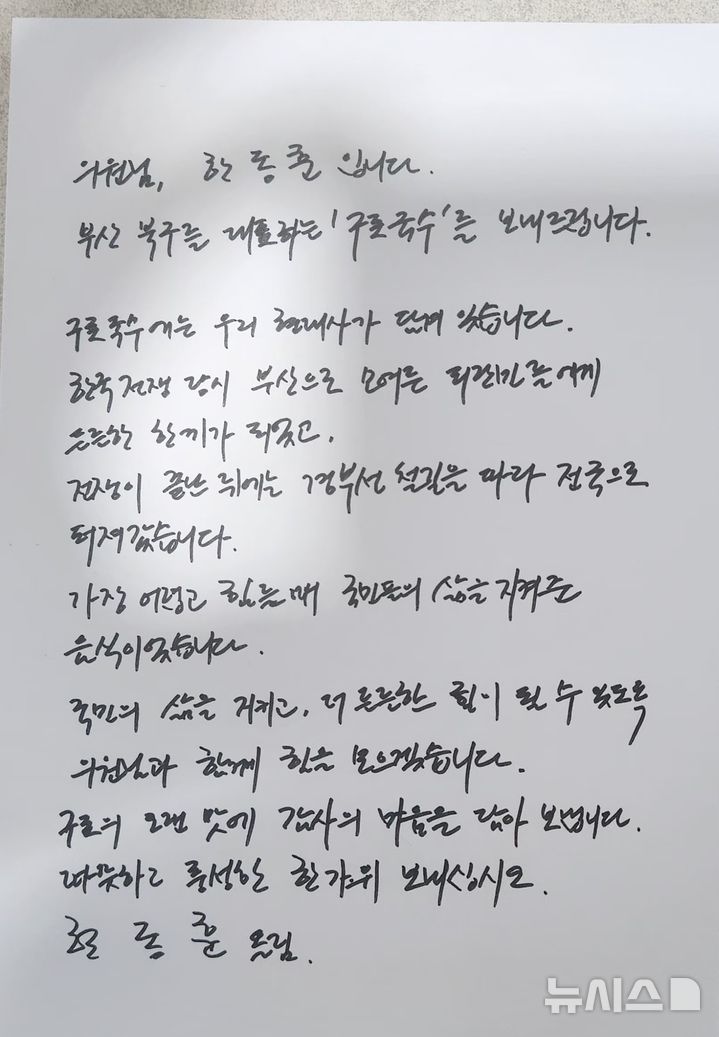 의원님, 한 동 훈 입니다.
부산 북구를 대표하는 '구포국수'를 보내드립니다.
구포국수에는 우리 현대사가 담겨 있습니다.
한국전쟁 당시 부산으로 모여든 피란민들에게
든든한 한끼가 되었고,
전쟁이 끝난 뒤에는 경부선 철길을 따라 전국으로
퍼져갔습니다.
가장 어렵고 힘들 때 국민들의 삶을 지켜준
음식이었습니다.
국민의 삶을 지키고, 더 든든한 힘이 될 수 있도록
의원님과 함께 힘을 모으겠습니다.
구포의 오랜 맛에 감사의 마음을 담아 보냅니다.
따뜻하고 풍성한 한가위 보내십시오.
한 동 훈 올림.
뉴시스